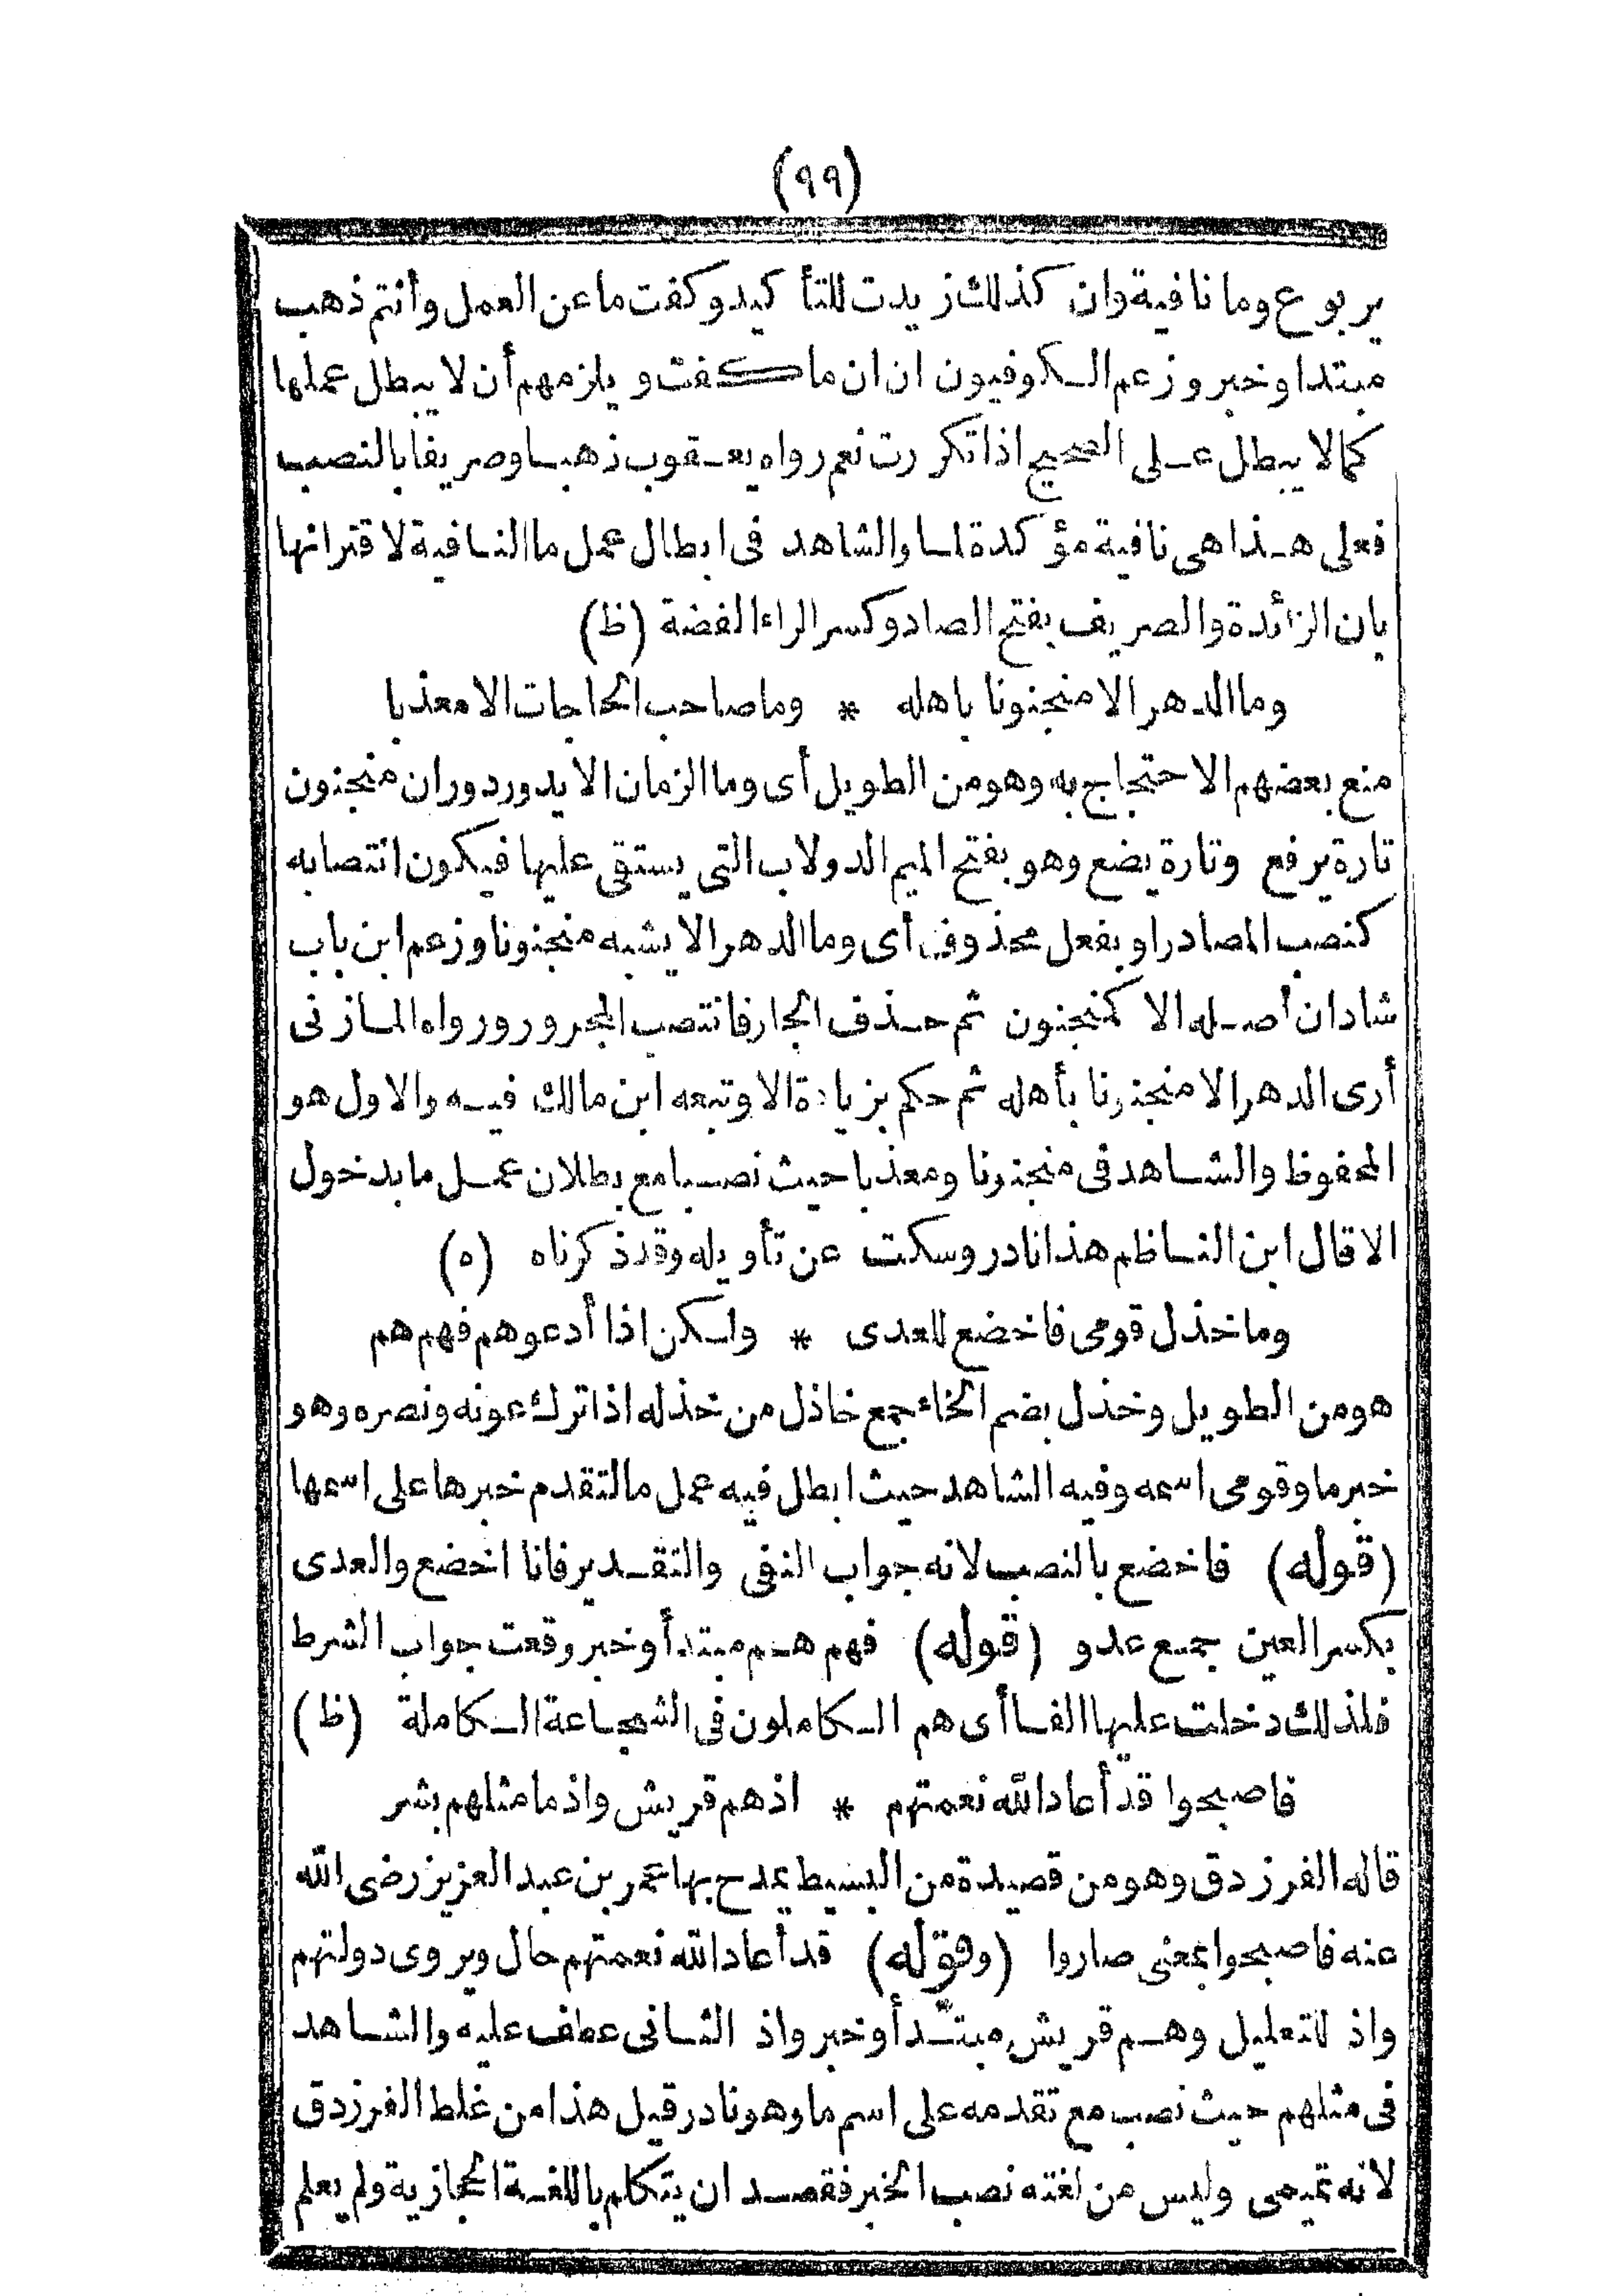 (٩٩)
يربوع وما نافية وان كذلك زيدت للتأ كيد وكفت ما عن العمل وأنتم ذهب
مبتدا وخبر وزعم الكوفيون ان ان ما كفت ويلزمهم أن لا يبطل عملها
كما لا يبطل على الصحيح اذا تكررت نعم رواه يعقوب ذهبا وصريفا بالنصب
فعلى هذا هى نافية مؤكدة لما والشاهد فى ابطال عمل ما النافية لاقترانها
بان الزائدة والصريف بفتح الصاد وكسر الراء الفضة (ظ)
وما الدهر الا منجنونا باهله * وما صاحب الحاجات الا معذبا
منع بعضهم الاحتجاج به وهو من الطويل أى وما الزمان الا يدور دوران منجنون
تارة يرفع وتارة يضع وهو بفتح الميم الدولاب التى يستقى عليها فيكون انتصابه
كنصب المصادر او بفعل محذوف أى وما الدهر الا يشبه منجنونا وزعم ابن باب
شاد ان أصله الا كمنجنون ثم حذف الجار فانتصب المجرور ورواه المازنى
أرى الدهر الا منجنونا بأهله ثم حكم بزيادة الا وتبعه ابن مالك فيه والاول هو
المحفوظ والشاهد فى منجنونا ومعذبا حيث نصبا مع بطلان عمل ما بدخول
الا قال ابن الناظم هذا نادر وسكت عن تأويله وقد ذكرناه (ه)
وما خذل قومى فاخضع للعدى * ولكن اذا أدعوهم فهم هم
هو من الطويل وخذل بضم الخاء جمع خاذل من خذله اذا ترك عونه ونصره وهو
خبر ما وقومى اسمه وفيه الشاهد حيث ابطل فيه عمل ما لتقدم خبرها على اسمها
(قوله) فاخضع بالنصب لانه جواب النفى والتقدير فانا اخضع والعدى
بكسر العين جمع عدو (قوله) فهم هم مبتدأ وخبر وقعت جواب الشرط
فلذلك دخلت عليها الفا أى هم الكاملون فى الشجاعة الكاملة (ظ)
فاصبحوا قد أعاد الله نعمتهم * اذهم قريش واذ ما مثلهم بشر
قاله الفرزدق وهو من قصيدة من البسيط يمدح بها عمر بن عبد العزيز رضى الله
عنه فاصبحوا بمعنى صاروا (وقوله) قد أعاد الله نعمتهم حال ويروى دولتهم
واذ للتعليل وهم قريش مبتدأ وخبر واذ الثانى عطف عليه والشاهد
فى مثلهم حيث نصب مع تقدمه على اسم ما وهو نادر قيل هذا من غلط الفرزدق
لانه تميمى وليس من لغته نصب الخبر فقصد ان يتكلم باللغة الحجازية ولم يعلم